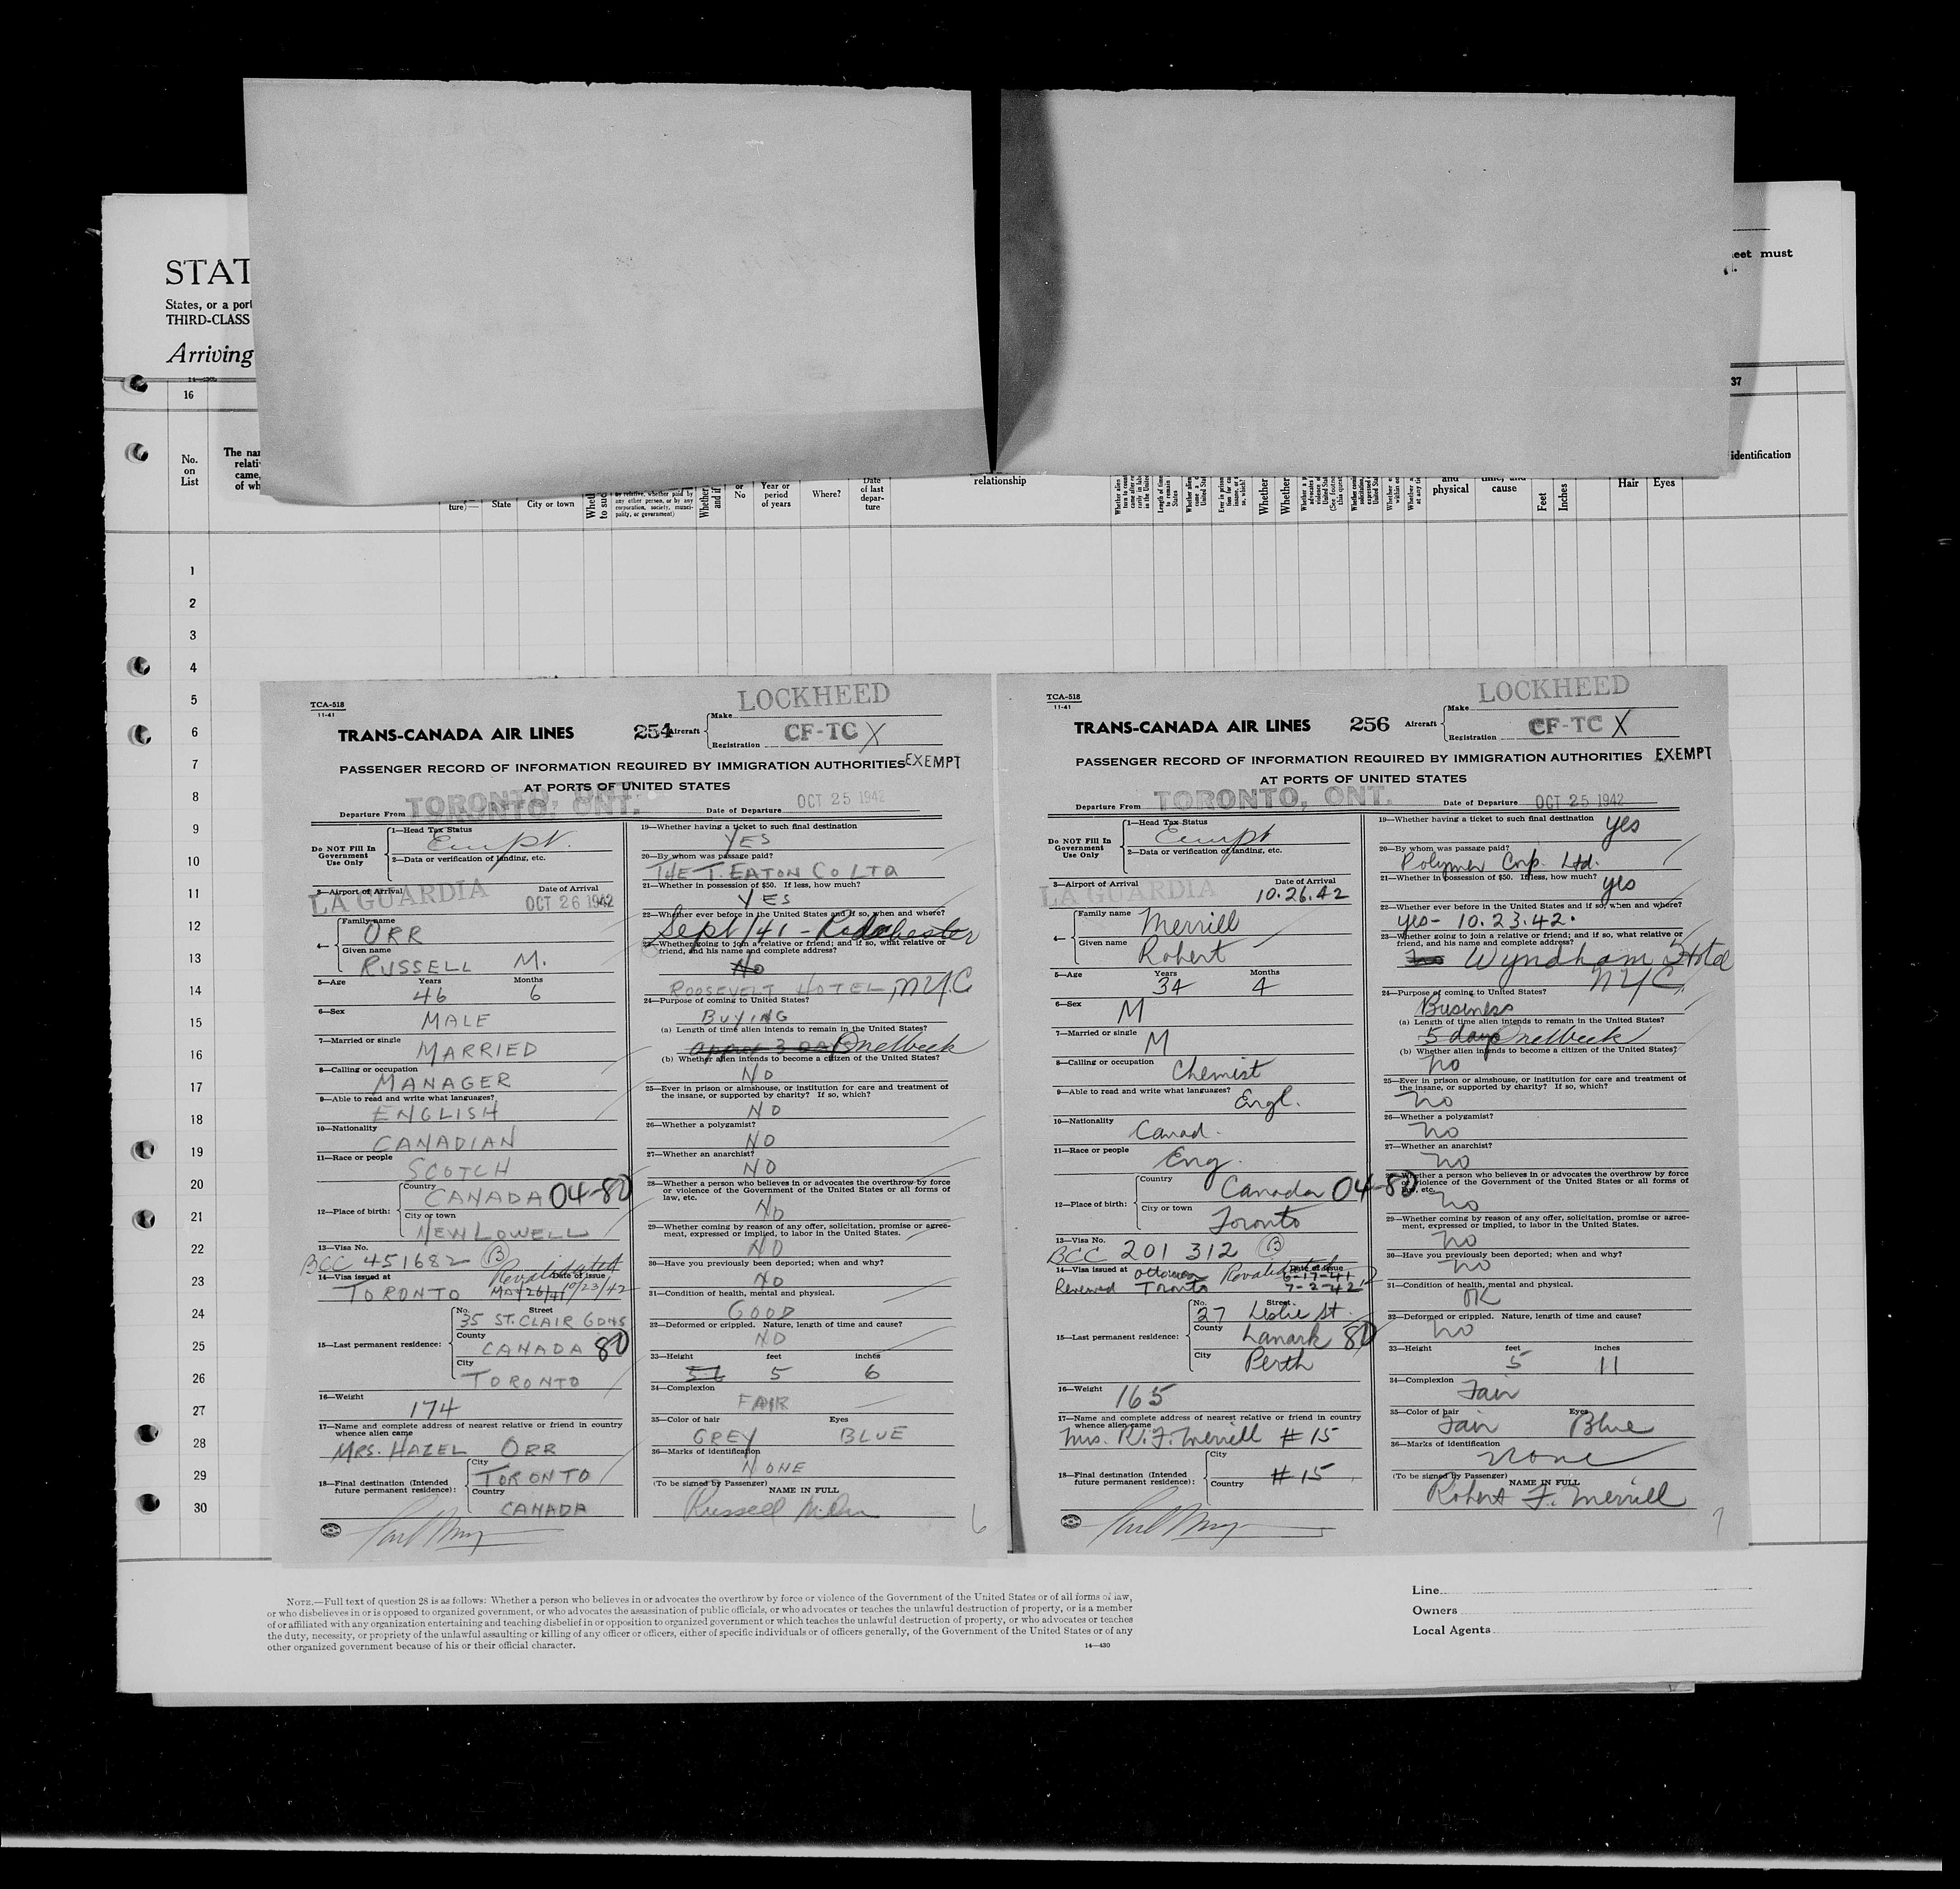 STAT
States, or a port
THIRD-CLASS
Arriving
eet must
16
37
No.
on
List
The nam
relati
came,
of wh
ture)—
State
City or town
or
No
Year or
period
of years
Where?
Date
of last
depar-
ture
relationship
and
physical
cause
Feet
Inches
Hair
Eyes
identification
1
2
3
4
5
6
7
8
9
10
11
12
13
14
15
16
17
18
19
20
21
22
23
24
25
26
27
28
29
30
TCA-518
11-41
LOCKHEED
TRANS-CANADA AIR LINES 254 Aircraft
Make
Registration CF-TC X
PASSENGER RECORD OF INFORMATION REQUIRED BY IMMIGRATION AUTHORITIES EXEMPT
AT PORTS OF UNITED STATES
Departure From TORONTO, ONT. Date of Departure OCT 25 1942
Do NOT Fill In
Government
Use Only
1—Head Tax Status
Exempt
2—Data or verification of landing, etc.
3—Airport of Arrival Date of Arrival
LA GUARDIA OCT 26 1942
4— Family name
ORR
Given name
RUSSELL M.
5—Age Years Months
46 6
6—Sex
MALE
7—Married or single
MARRIED
8—Calling or occupation
MANAGER
9—Able to read and write what languages?
ENGLISH
10—Nationality
CANADIAN
11—Race or people
SCOTCH
12—Place of birth: Country
CANADA 04-80
City or town
NEW LOWELL
13—Visa No.
BCC 451682 B
Revalidated
14—Visa issued at Date of issue
TORONTO MAY/26/41 10/23/42
15—Last permanent residence: No. Street
35 ST. CLAIR GDNS
County
CANADA 80
City
TORONTO
16—Weight
174
17—Name and complete address of nearest relative or friend in country
whence alien came
MRS. HAZEL ORR
18—Final destination (Intended
future permanent residence):
City
TORONTO
Country
CANADA
19—Whether having a ticket to such final destination
YES
20—By whom was passage paid?
THE T. EATON CO LTD
21—Whether in possession of $50. If less, how much?
YES
22—Whether ever before in the United States and if so, when and where?
Sept/41 - Rochester
23—Whether going to join a relative or friend; and if so, what relative or
friend, and his name and complete address?
No
ROOSEVELT HOTEL NYC
24—Purpose of coming to United States?
BUYING
(a) Length of time alien intends to remain in the United States?
approx 3 DAYS One Week
(b) Whether alien intends to become a citizen of the United States?
NO
25—Ever in prison or almshouse, or institution for care and treatment of
the insane, or supported by charity? If so, which?
NO
26—Whether a polygamist?
NO
27—Whether an anarchist?
NO
28—Whether a person who believes in or advocates the overthrow by force
or violence of the Government of the United States or all forms of
law, etc.
NO
29—Whether coming by reason of any offer, solicitation, promise or agree-
ment, expressed or implied, to labor in the United States.
NO
30—Have you previously been deported; when and why?
NO
31—Condition of health, mental and physical.
GOOD
32—Deformed or crippled. Nature, length of time and cause?
NO
33—Height feet inches
5 6
34—Complexion
FAIR
35—Color of hair Eyes
GREY BLUE
36—Marks of identification
NONE
(To be signed by Passenger) NAME IN FULL
Russell
6
TCA-518
11-41
LOCKHEED
TRANS-CANADA AIR LINES 256 Aircraft
Make
Registration CF-TC X
PASSENGER RECORD OF INFORMATION REQUIRED BY IMMIGRATION AUTHORITIES EXEMPT
AT PORTS OF UNITED STATES
Departure From TORONTO, ONT. Date of Departure OCT 25 1942
Do NOT Fill In
Government
Use Only
1—Head Tax Status
Exempt
2—Data or verification of landing, etc.
3—Airport of Arrival Date of Arrival
LA GUARDIA 10.26.42
4— Family name
Merrill
Given name
Robert
5—Age Years Months
34 4
6—Sex
M
7—Married or single
M
8—Calling or occupation
Chemist
9—Able to read and write what languages?
Engl.
10—Nationality
Canad.
11—Race or people
Eng.
12—Place of birth: Country
Canada 04-80
City or town
Toronto
13—Visa No.
BCC 201 312 B
14—Visa issued at Ottawa Revalidated Date of issue
6-17-41
Renewed Toronto 7-2-42
15—Last permanent residence: No. Street
27 Leslie St.
County
Lanark 80
City
Perth
16—Weight
165
17—Name and complete address of nearest relative or friend in country
whence alien came
Mrs. R. F. Merrill #15
18—Final destination (Intended
future permanent residence):
City
#15
Country
19—Whether having a ticket to such final destination yes
20—By whom was passage paid?
Polymer Corp. Ltd.
21—Whether in possession of $50. If less, how much? yes
22—Whether ever before in the United States and if so, when and where?
yes- 10.23.42.
23—Whether going to join a relative or friend; and if so, what relative or
friend, and his name and complete address?
Wyndham Hotel
NYC
24—Purpose of coming to United States?
Business
(a) Length of time alien intends to remain in the United States?
5 days One Week
(b) Whether alien intends to become a citizen of the United States?
no
25—Ever in prison or almshouse, or institution for care and treatment of
the insane, or supported by charity? If so, which?
no
26—Whether a polygamist?
no
27—Whether an anarchist?
no
28—Whether a person who believes in or advocates the overthrow by force
or violence of the Government of the United States or all forms of
law, etc.
no
29—Whether coming by reason of any offer, solicitation, promise or agree-
ment, expressed or implied, to labor in the United States.
no
30—Have you previously been deported; when and why?
no
31—Condition of health, mental and physical.
OK
32—Deformed or crippled. Nature, length of time and cause?
no
33—Height feet inches
5 11
34—Complexion
Fair
35—Color of hair Eyes
Fair Blue
36—Marks of identification
None
(To be signed by Passenger) NAME IN FULL
Robert F. Merrill
7
NOTE.—Full text of question 28 is as follows: Whether a person who believes in or advocates the overthrow by force or violence of the Government of the United States or of all forms of law,
or who disbelieves in or is opposed to organized government, or who advocates the assassination of public officials, or who advocates or teaches the unlawful destruction of property, or is a member
of or affiliated with any organization entertaining and teaching disbelief in or opposition to organized government or which teaches the unlawful destruction of property, or who advocates or teaches
the duty, necessity, or propriety of the unlawful assaulting or killing of any officer or officers, either of specific individuals or of officers generally, of the Government of the United States or of any
other organized government because of his or their official character.
14—430
Line
Owners
Local Agents